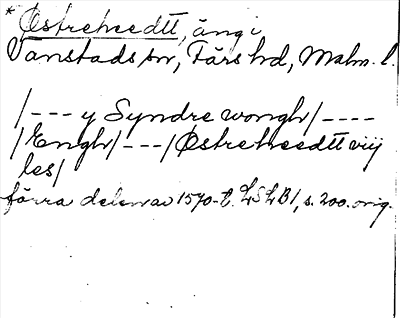 * Østreheedtt, äng i
Vanstads sn, Färs hd, Malm. l.
/--- y Syndre wongh/----
/Engh/---/Østreheedtt viij
les/
förra delen av 1570-t. LSLB1, s. 200. orig.